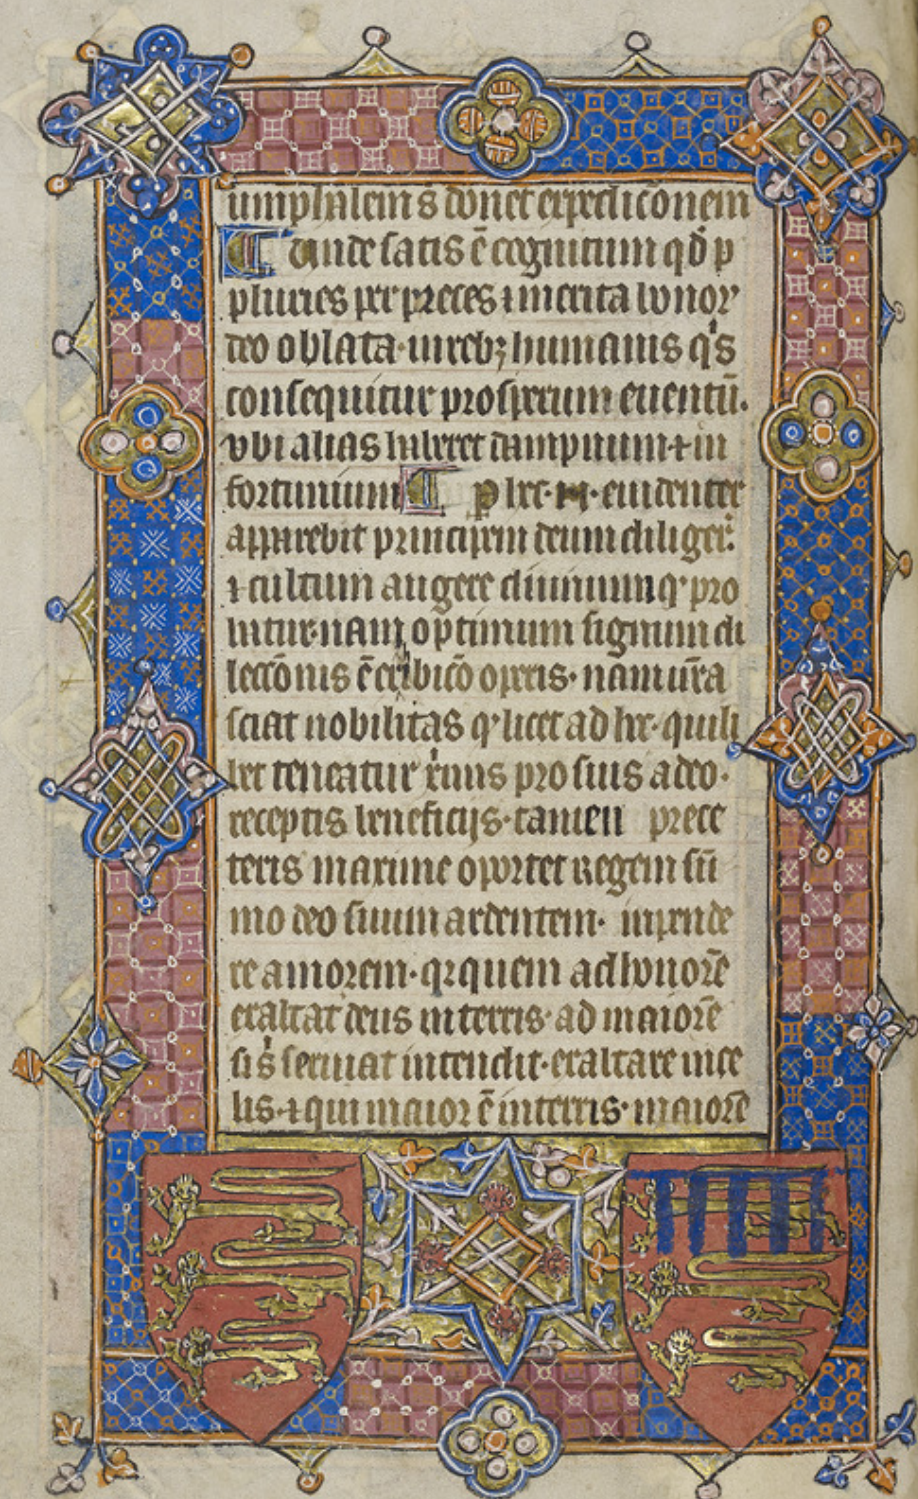 umphalem s donet expediconem
Unde satis e cognitum qd p
pluries per preces ⁊ merita bonor
deo oblata · in rebꝫ humanis qs
consequitur prosperum euentū.
vbi alias haberet dampnum ⁊ in
fortunium P hec · n · euidenter
apparebit principem deum diliger
⁊ cultum augere diuinum q pro
bitur · nam optimum signum di
lecconis ē exhibico operis · nam vr̄a
sciat nobilitas q licet ad hec · quili
bet teneatur xanus pro suis a deo ·
receptis beneficijs · tamen prece
teris maxime oportet regem sū
mo deo suum ardentem · inpende
re amorem · qr quem ad honorē
exaltat deus in terris · ad maiorē
si s seruiat intendit · exaltare in ce
lis · ⁊ qui maior ē in terris · maiorē